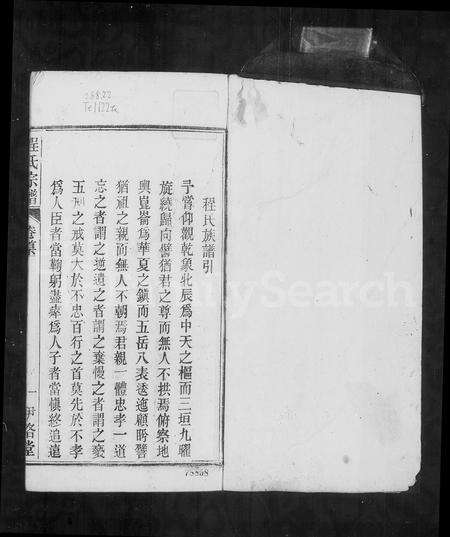 程氏族譜引
予嘗仰觀乾象北辰爲中天之樞而三垣九曜
旋繞歸向譬猶君之尊而無人不拱焉俯察地
輿崑崙爲華夏之鎮而五岳八表透迤顧盼譬
猶祖之親而無人不朝焉君親一體忠孝一道
忘之者謂之逆遺之者謂之棄慢之者謂之褻
五刑之戒莫大於不忠百行之首莫先於不孝
爲人臣者當鞠躬盡瘁爲人子者當愼終追遠
程氏宗譜
卷
一
伊洛堂
78868